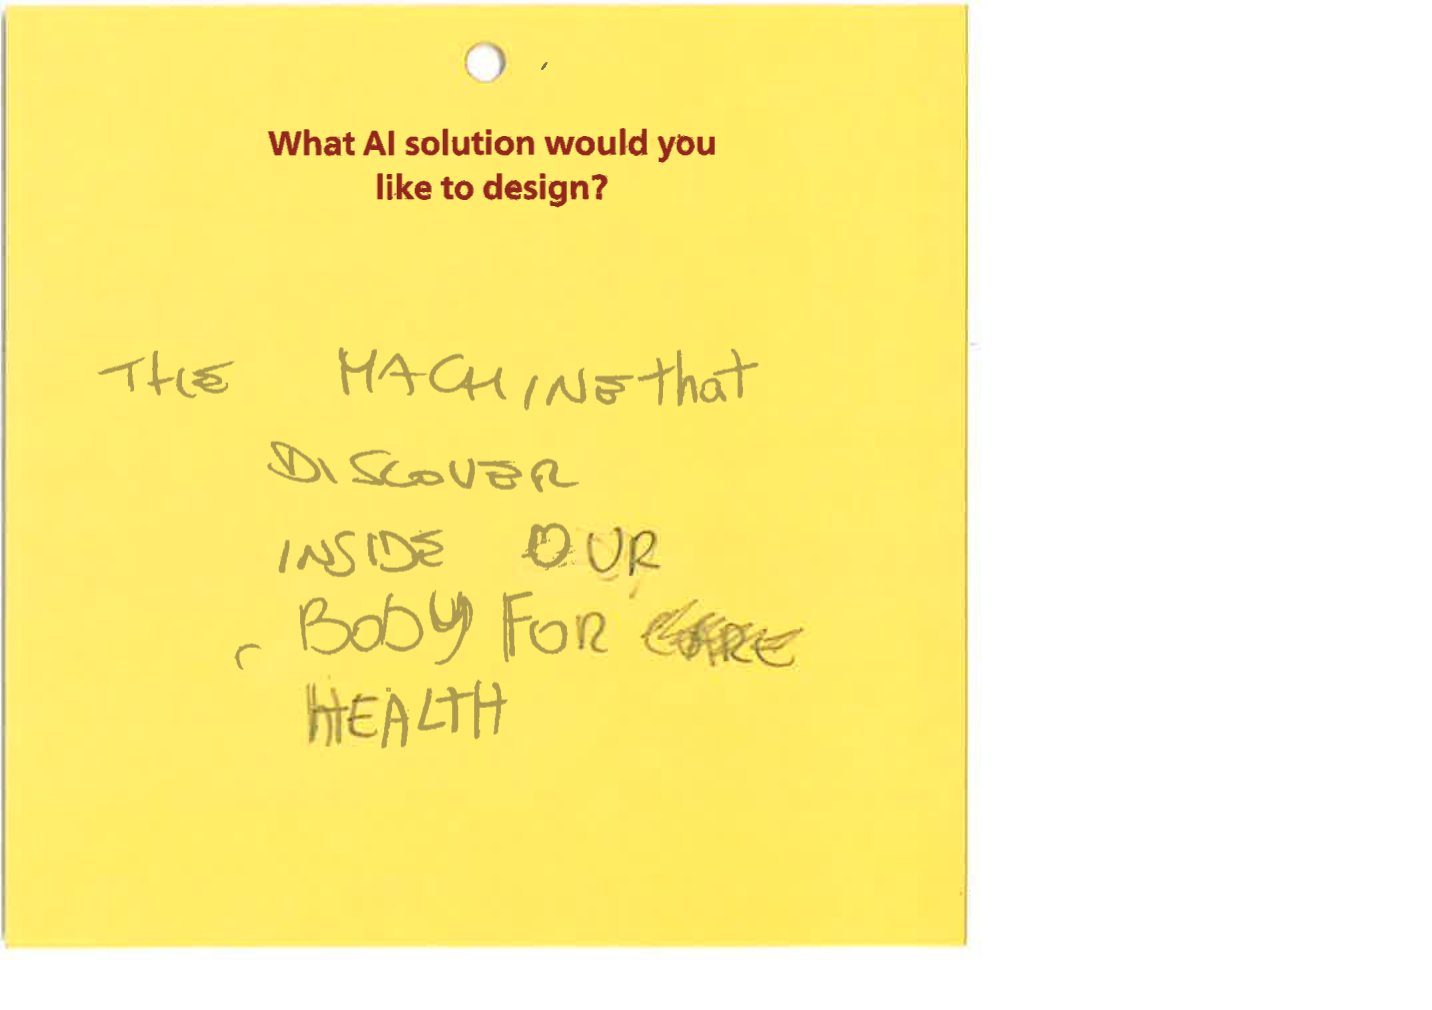 What AI solution would you
like to design?
THE MACHINE that
DISCOVER
INSIDE OUR
BODY FOR CARE
HEALTH